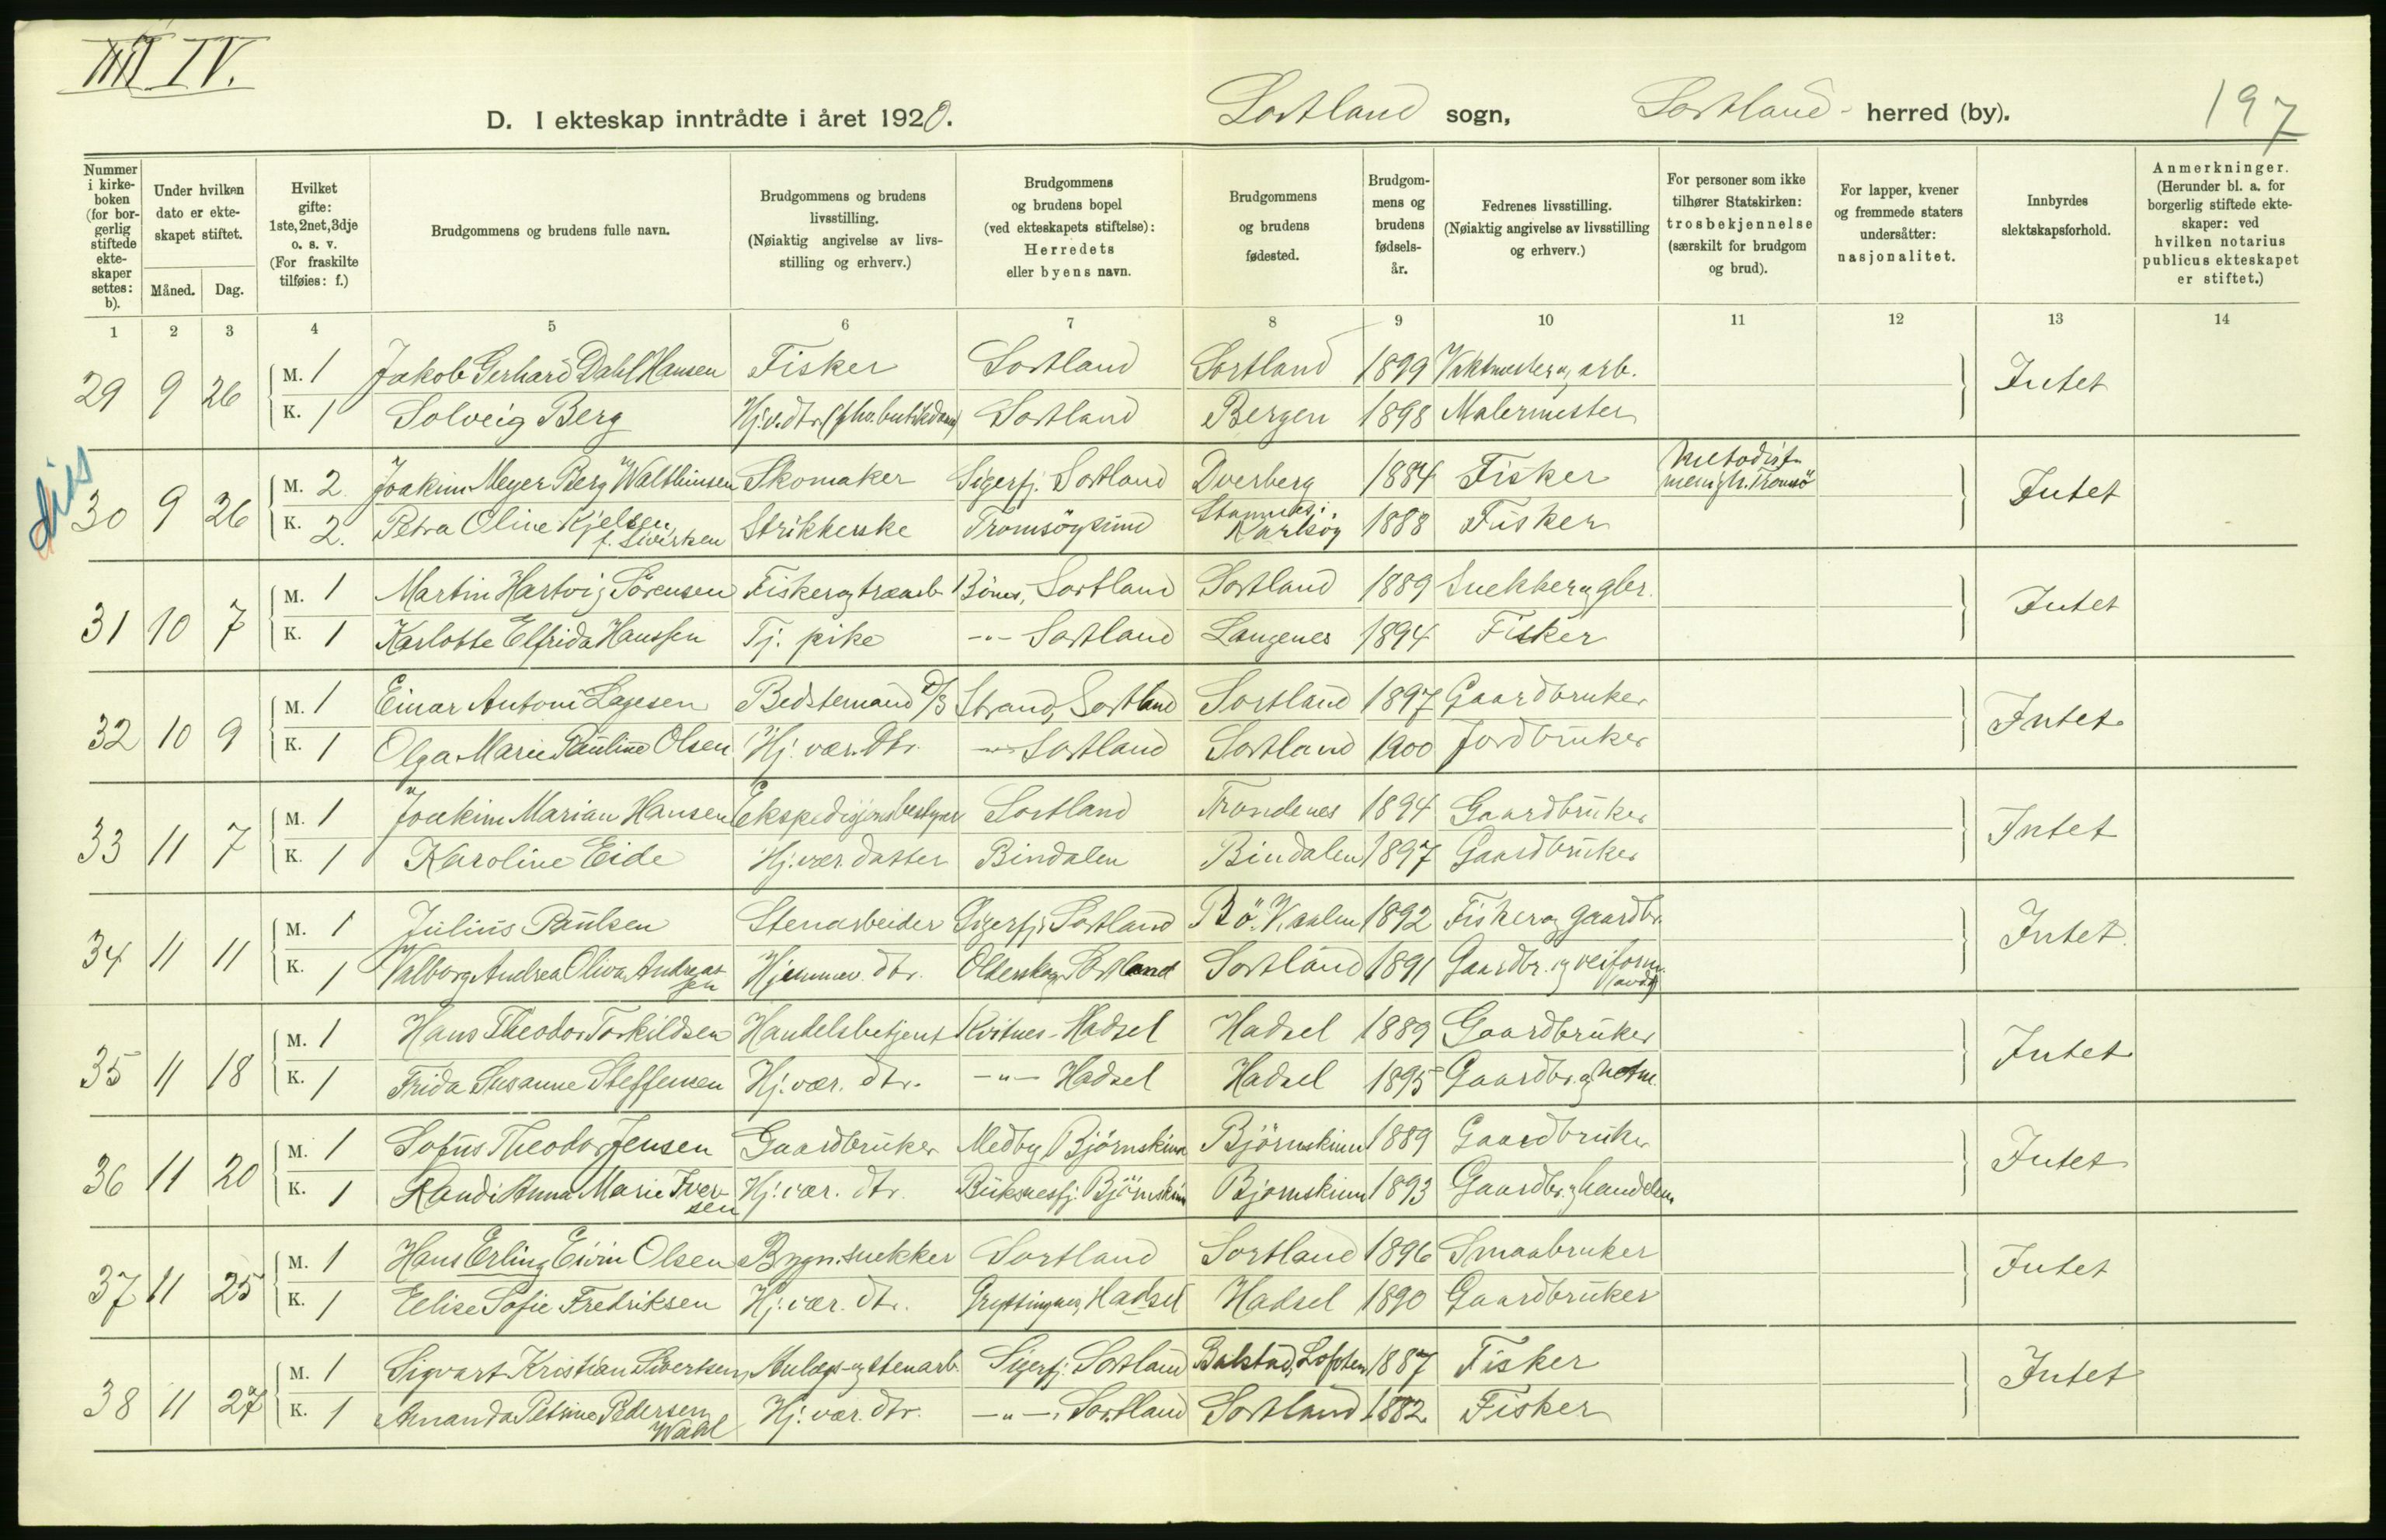 IV.
197
D. I ekteskap inntrådte i året 1920. Sortland sogn, Sortland herred (by).
Nummer i kirkeboken (for borgerlig stiftede ekteskaper settes: b).
Under hvilken dato er ekteskapet stiftet.
Måned. Dag.
Hvilket gifte: 1ste, 2net, 3dje o. s. v. (For fraskilte tilføies: f.)
Brudgommens og brudens fulle navn.
Brudgommens og brudens livsstilling. (Nøiaktig angivelse av livsstilling og erhverv.)
Brudgommens og brudens bopel (ved ekteskapets stiftelse): Herredets eller byens navn.
Brudgommens og brudens fødested.
Brudgommens og brudens fødselsår.
Fedrenes livsstilling. (Nøiaktig angivelse av livsstilling og erhverv.)
For personer som ikke tilhører Statskirken: trosbekjennelse (særskilt for brudgom og brud).
For lapper, kvener og fremmede staters undersåtter: nasjonalitet.
Innbyrdes slektskapsforhold.
Anmerkninger. (Herunder bl. a. for borgerlig stiftede ekteskaper: ved hvilken notarius publicus ekteskapet er stiftet.)
1 2 3 4 5 6 7 8 9 10 11 12 13 14
29 9 26 M. 1 Jakob Gerhard Dahl Hansen Fisker Sortland Sortland 1899 Vaktmester og arb. Intet
K. 1 Solveig Berg Hj.v.dtr. Sortland Bergen 1898 Malermester
30 9 26 M. 2 Joakim Meyer Berg Walthinsen Skomaker Sigerfj. Sortland Dverberg 1884 Fisker Metodist menigh. Tromsö Intet
K. 2. Petra Oline Kjelsen f. Sivertsen Strikkerske Tromsöysund Karlsöy 1888 Fisker
31 10 7 M. 1 Martin Hartvig Sörensen Fisker og træarb. Bönes, Sortland Sortland 1889 Snekker og gbr. Intet
K. 1 Karlotte Elfrida Hanssen Tj. pike -"- Sortland Langenes 1894 Fisker
32 10 9 M. 1 Einar Antoni Lagesen Bedstemand D/S Strand, Sortland Sortland 1897 Gaardbruker Intet
K. 1 Olga Marie Pauline Olsen Hj. vær. dtr. -"- Sortland Sortland 1900 Jordbruker
33 11 7 M. 1 Joakim Marian Hansen Ekspedisjonsbestyrer Sortland Trondenes 1894 Gaardbruker Intet
K. 1 Karoline Eide Hj. vær. datter Bindalen Bindalen 1897 Gaardbruker
34 11 11 M. 1 Julius Paulsen Stenarbeider Sigerfj. Sortland Bö V.aalen 1892 Fisker og gaardbr. Intet
K. 1 Valborg Andrea Oliva Andreassen Hjemmev. dtr. Olderskog Sortland Sortland 1891 Gaardbr. og veiform.
35 11 18 M. 1 Hans Theodor Torkildsen Handelsbetjent Kvitnes - Hadsel Hadsel 1889 Gaardbruker Intet
K. 1 Frida Susanne Steffensen Hj. vær. dtr. -"- Hadsel Hadsel 1895 Gaardbr. og notm.
36 11 20 M. 1 Sofus Theodor Jensen Gaardbruker Medby, Björnskinn Björnskinn 1889 Gaardbruker Intet
K. 1 Randi Anna Marie Iversen Hj. vær. dtr. Buksnesfj. Björnskinn Bjornskinn 1893 Gaardbr. og handelsm
37 11 25 M. 1 Hans Erling Eivin Olsen Bygn. snekker Sortland Sortland 1896 Smaabruker Intet
K. 1 Elise Sofie Fredriksen Hj. vær. dtr. Gryttingnes, Hadsel Hadsel 1890 Gaardbruker
38 11 27 M. 1 Sigvart Kristian Sivertsen Anlægs- og stenarb. Sigerfj. Sortland Balstad, Lofoten 1887 Fisker Intet
K. 1 Amanda Petrine Pedersen Waal Hj. vær. dtr. -"- Sortland Sortland 1882. Fisker